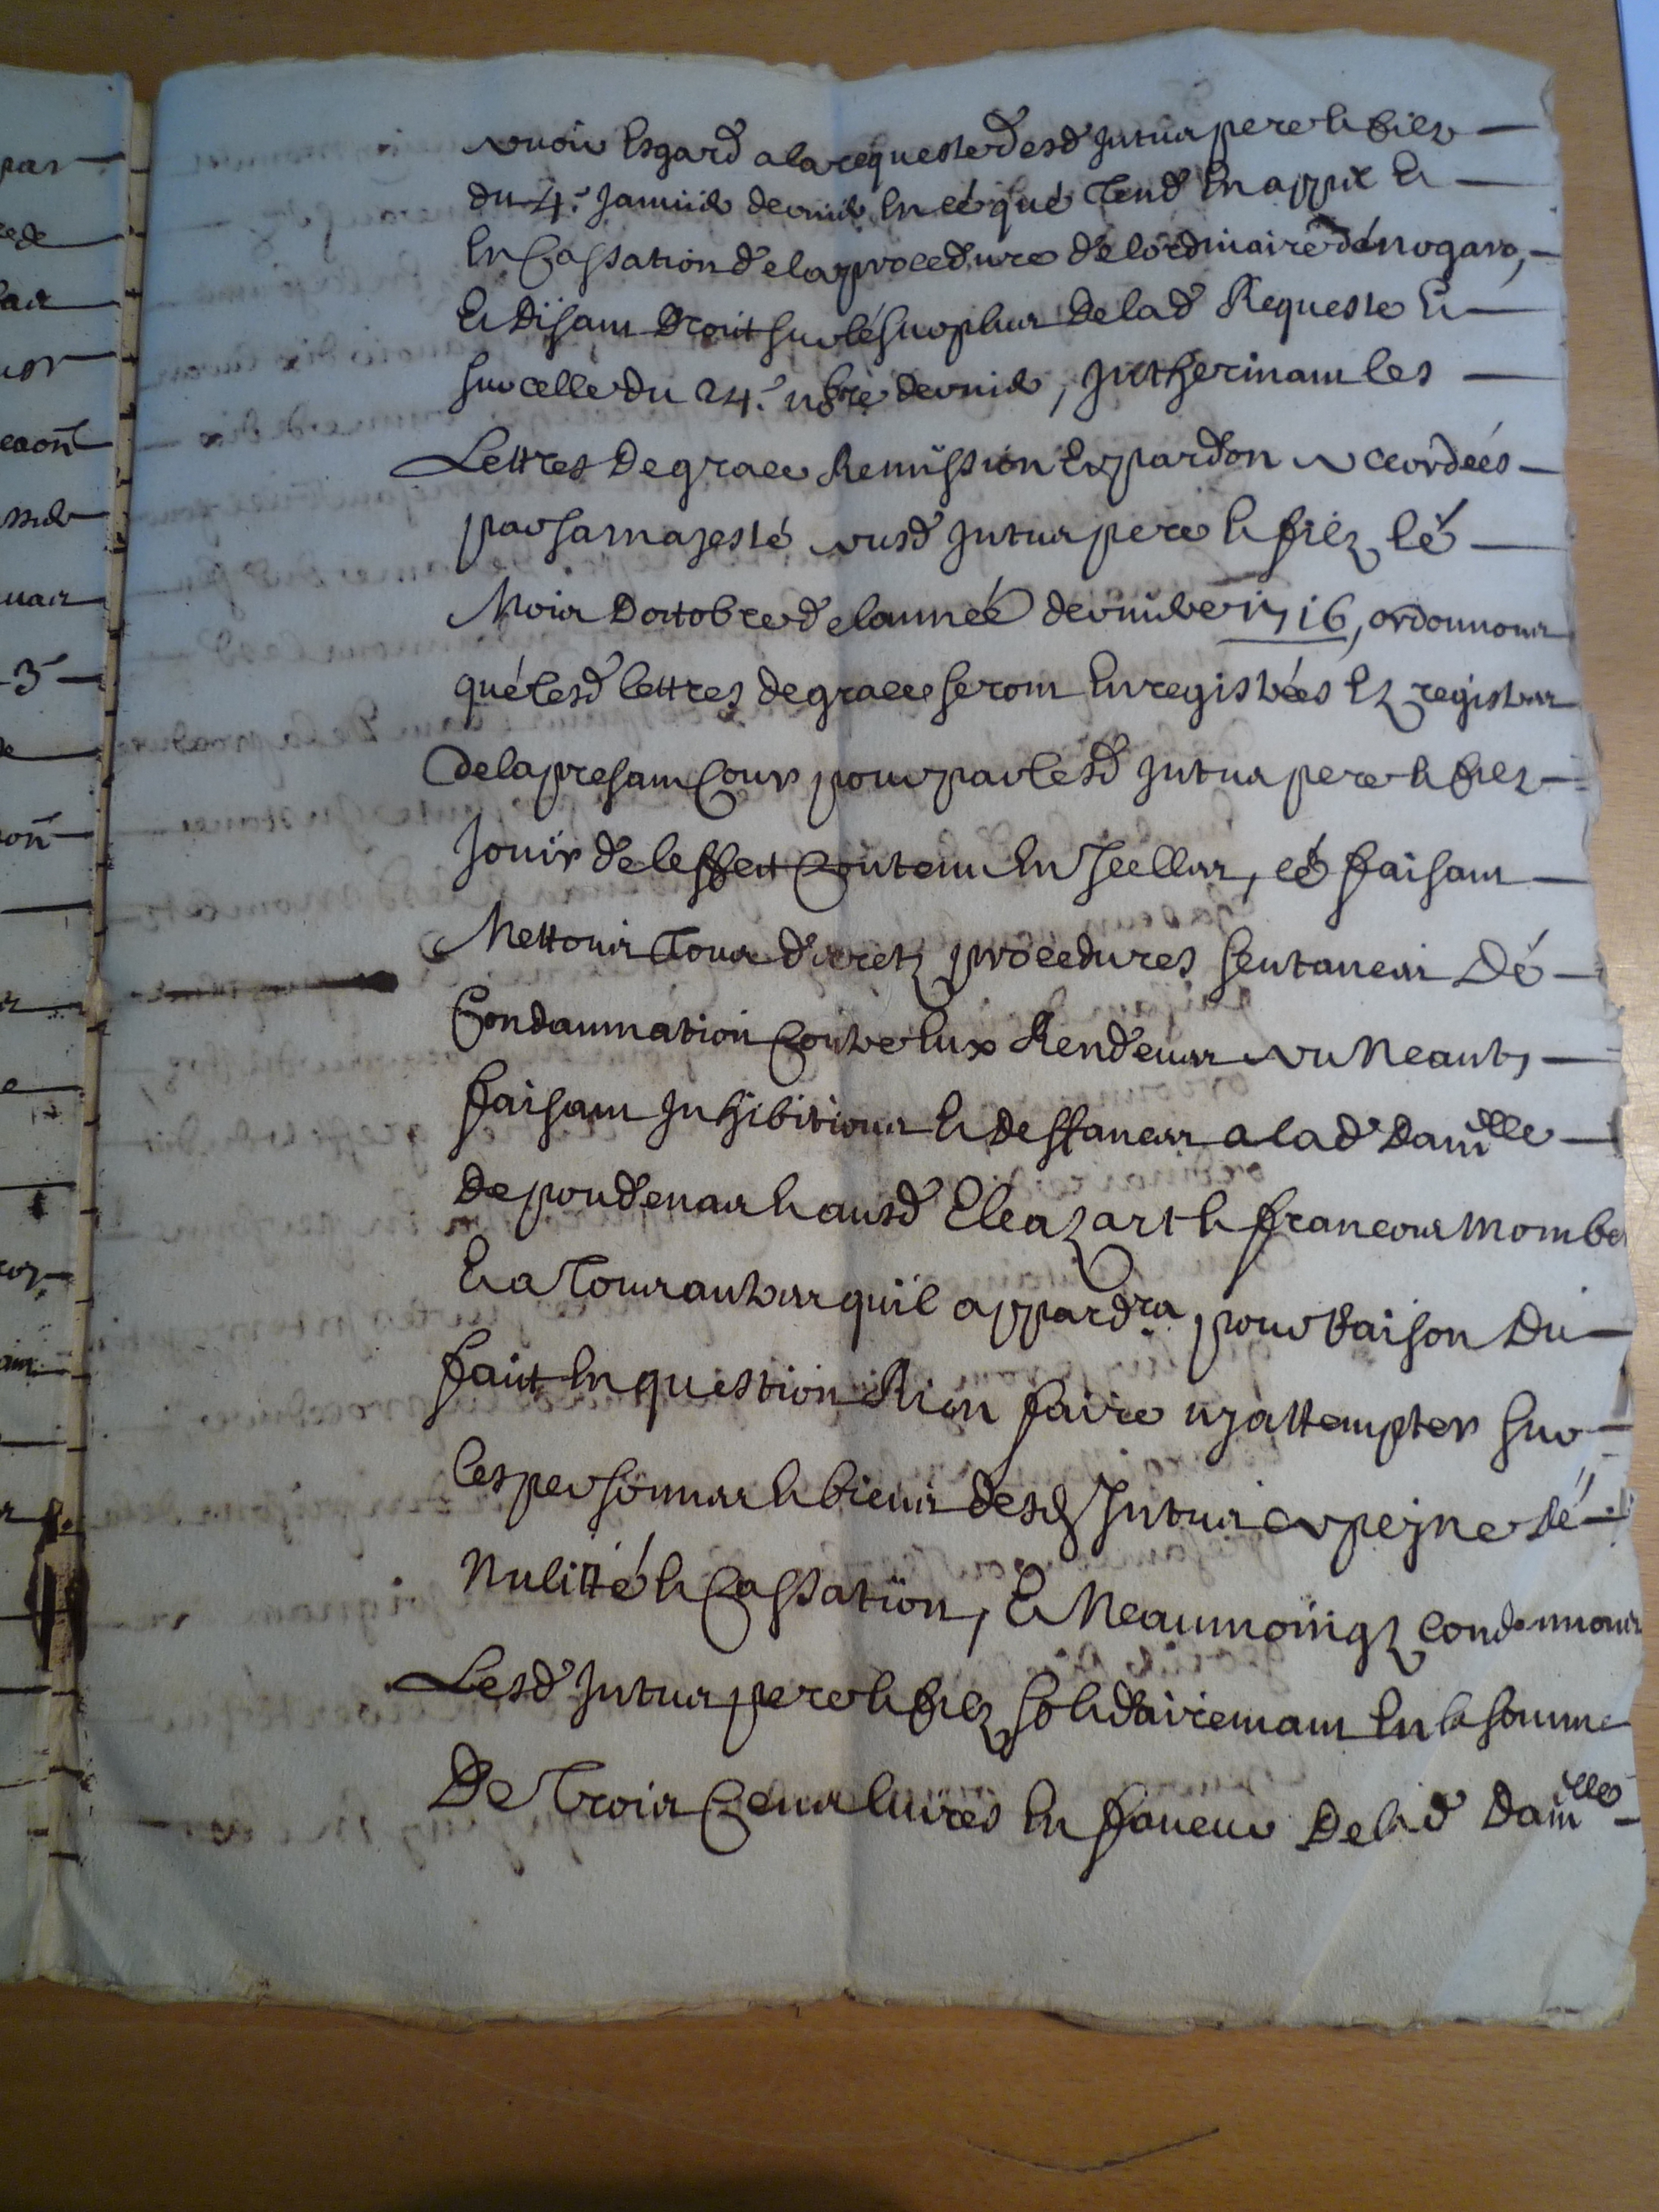 avoir Esgard a la requeste desd Intras pere et filz
du 4.e Janvier dernier En cé qué tend En appel Et
En Cassation de la procedure de lordinaire dé nogaro,
Et Disant Droit sur lé surplus De lad Requeste Et
sur celle du 24.e 9bre dernier, Intherinant les
Lettres De grace Remission Et pardon accordées
par sa majesté ausd Intras pere et filz lé
Mois Doctobre de lannéé derniere 1716, ordonnons
qué lesd lettres de grace seront Enregistrées Ez registres
de la presant Cour pour par lesd Intras pere et filz
Jouir de leffect Contenu En Jcelles, cé faisant
Mettons Tous decretz procedures sentances Dé
Condamnation Contre Eux Rendeues au Neant,
faisant Inhibitions Et deffances a lad Damlle
De poudenas et ausd Eleazart et francois mombe
Et a Tous autres quil appardra pour Raison Du
fait En question Rien faire ny attempter sur
les personnes et biens desd Intras a peyne dé
Nulitté et Cassation, Et Neaumoingz condamnons
Lesd Intras pere et filz solidairemant En la somme
De Trois Cens livres En faveur De lad Damlle
par
3